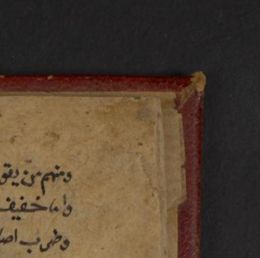 ومنهم من يقو
واما خفيف
وضرب اصا